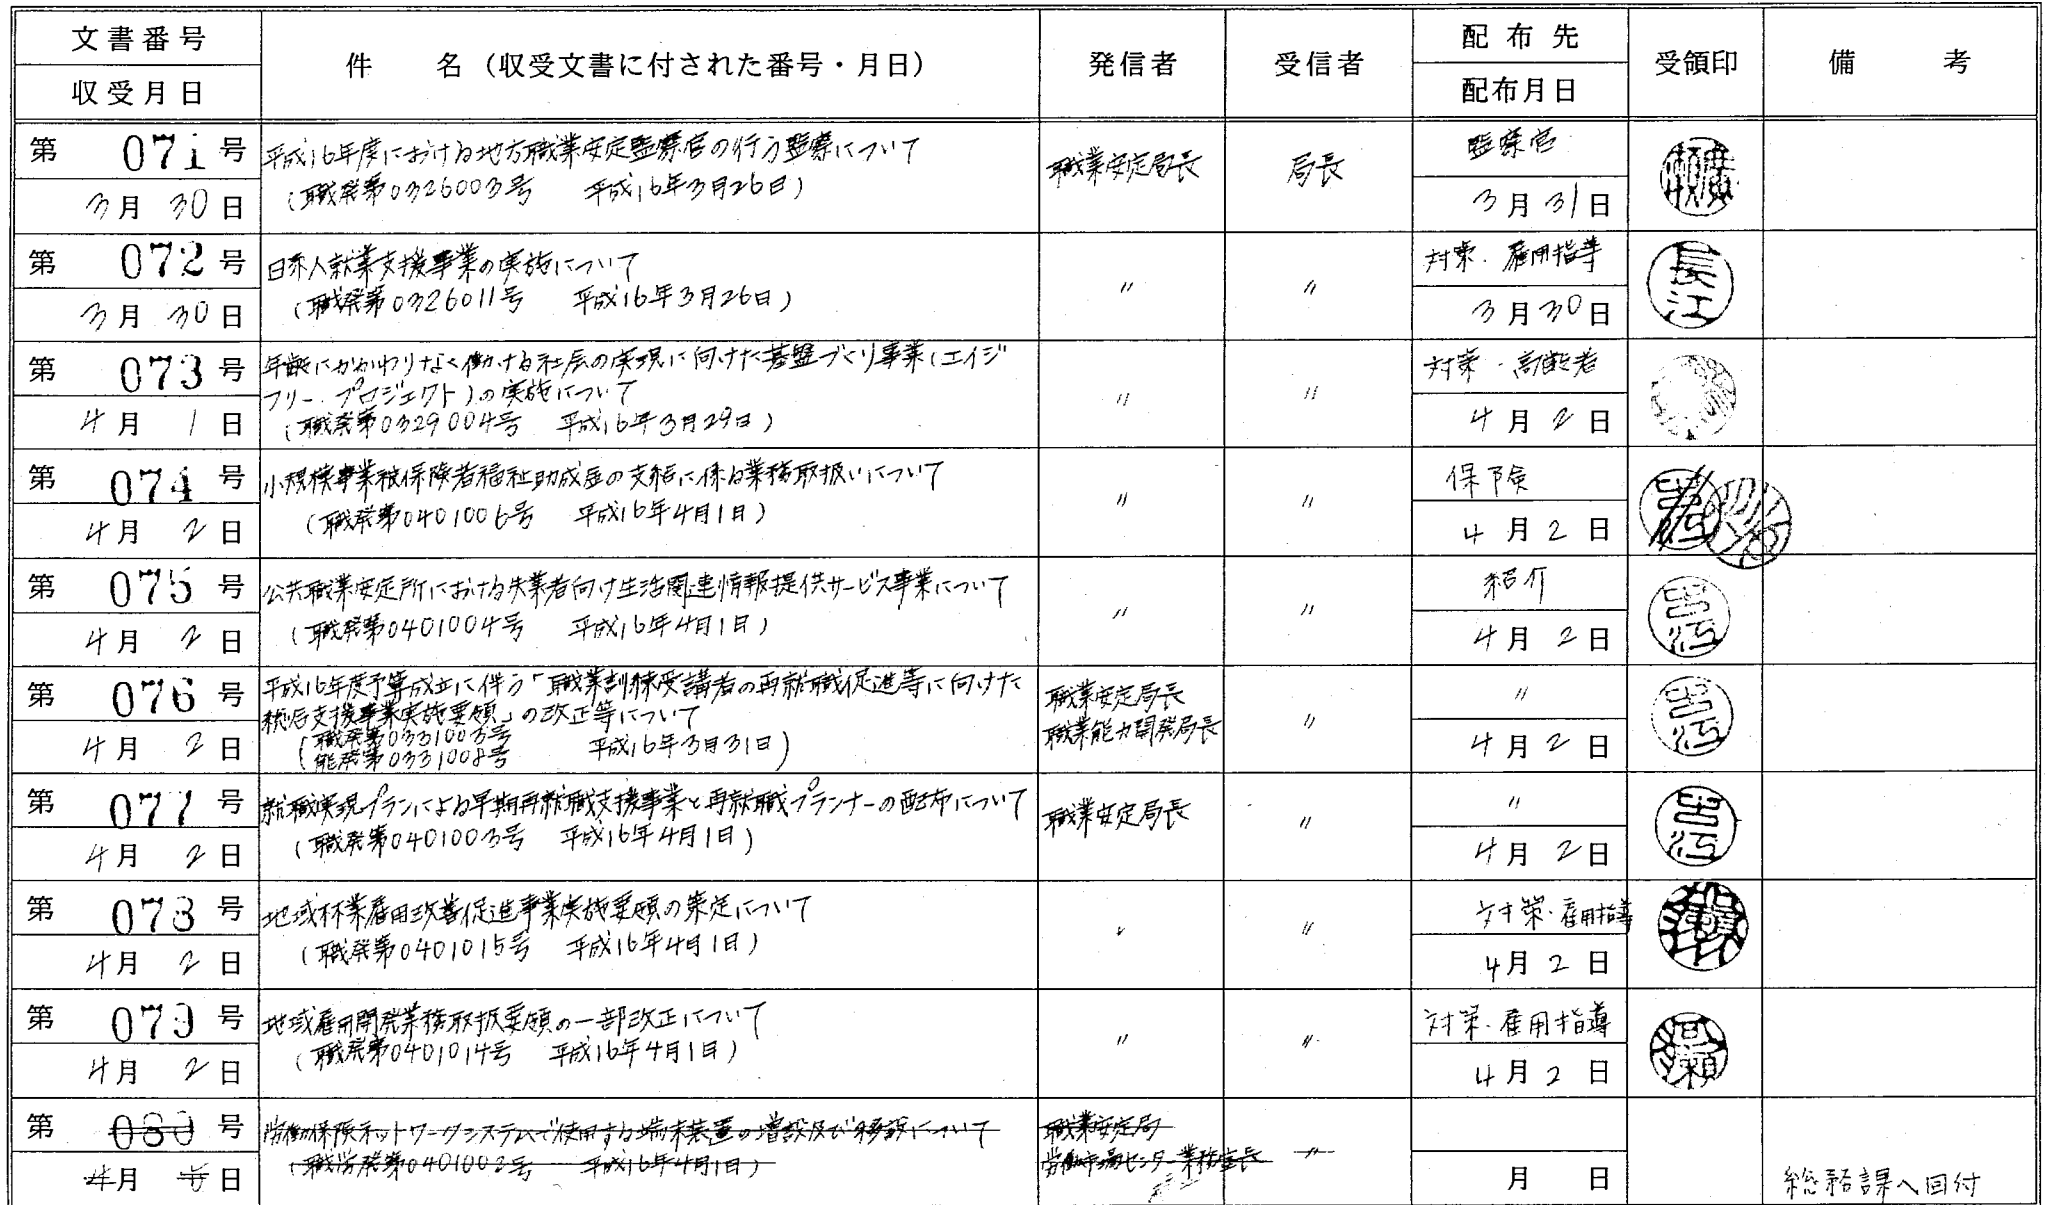 文書番号
収受月日
件　名（収受文書に付された番号・月日）
発信者
受信者
配布先
配布月日
受領印
備　考
第 071 号
3月 30日
平成16年度における地方職業安定監察官の行う監察について
（職発第0326003号　平成16年3月26日）
職業安定局長
局長
監察官
3月31日
第 072 号
3月 30日
日系人就業支援事業の実施について
（職発第0326011号　平成16年3月26日）
〃
〃
対策・雇用指導
3月30日
長江
第 073 号
4月 1日
年齢にかかわりなく働ける社会の実現に向けた基盤づくり事業（エイジ
フリー・プロジェクト）の実施について
（職発第0329004号　平成16年3月29日）
〃
〃
対策・高齢者
4月2日
第 074 号
4月 2日
小規模事業被保険者福祉助成金の支給に係る業務取扱いについて
（職発第0401006号　平成16年4月1日）
〃
〃
保険
4月2日
第 075 号
4月 2日
公共職業安定所における失業者向け生活関連情報提供サービス事業について
（職発第0401004号　平成16年4月1日）
〃
〃
紹介
4月2日
第 076 号
4月 2日
平成16年度予算成立に伴う「職業訓練受講者の再就職促進等に向けた
総合支援事業実施要領」の改正等について
（職発第0331003号
能発第0331008号　平成16年3月31日）
職業安定局長
職業能力開発局長
〃
〃
4月2日
第 077 号
4月 2日
就職実現プランによる早期再就職支援事業と再就職プランナーの配布について
（職発第0401003号　平成16年4月1日）
職業安定局長
〃
〃
4月2日
第 078 号
4月 2日
地域林業雇用改善促進事業実施要領の策定について
（職発第0401015号　平成16年4月1日）
〃
〃
対策・雇用指導
4月2日
第 079 号
4月 2日
地域雇用開発業務取扱要領の一部改正について
（職発第0401014号　平成16年4月1日）
〃
〃
対策・雇用指導
4月2日
第 080 号
4月 5日
労働保険ネットワークシステムで使用する端末装置の増設及び移設について
（職労発第0401002号　平成16年4月1日）
職業安定局
労働市場センター業務室長
〃
月　日
総務課へ回付